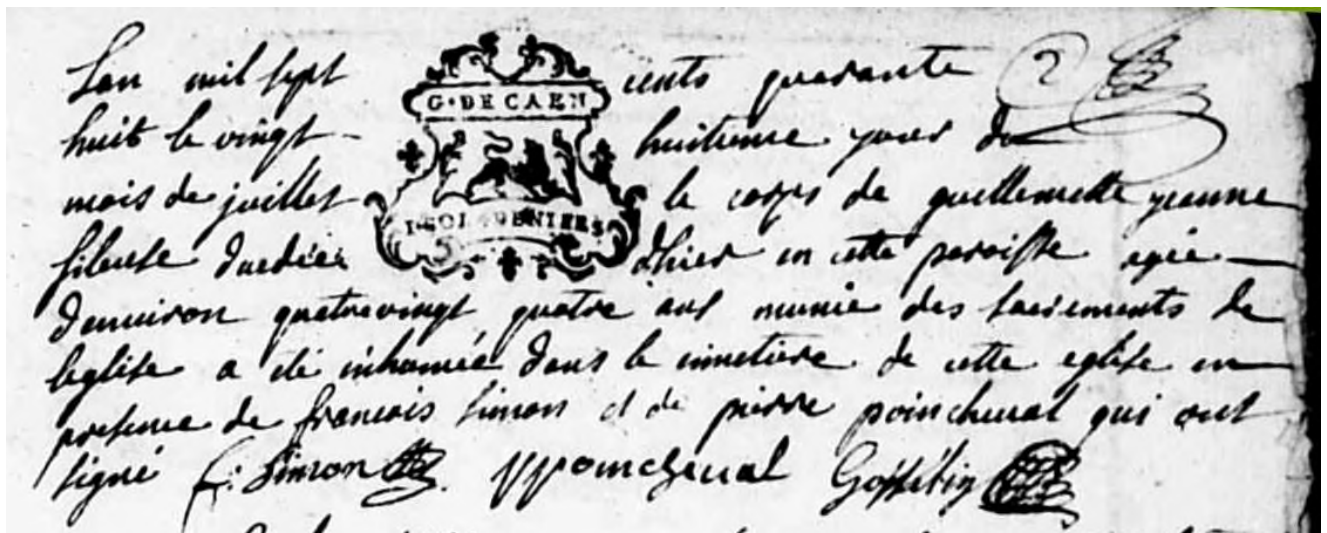 Lan mil sept cents quarante 2
G. DE CAEN
huit le vingt - huitieme jour du
mois de juillet le corps de guillemette jeanne
DENIERS
fileuse decedée dhier en cette paroisse agée
denuiron quatrevingt quatre ans munie des sacrements de
leglise a eté inhumée dans le cimetiere de cette eglise en
presence de francois simon et de pierre poincheual qui ont
signé f: Simon ppoincheual Gosselin